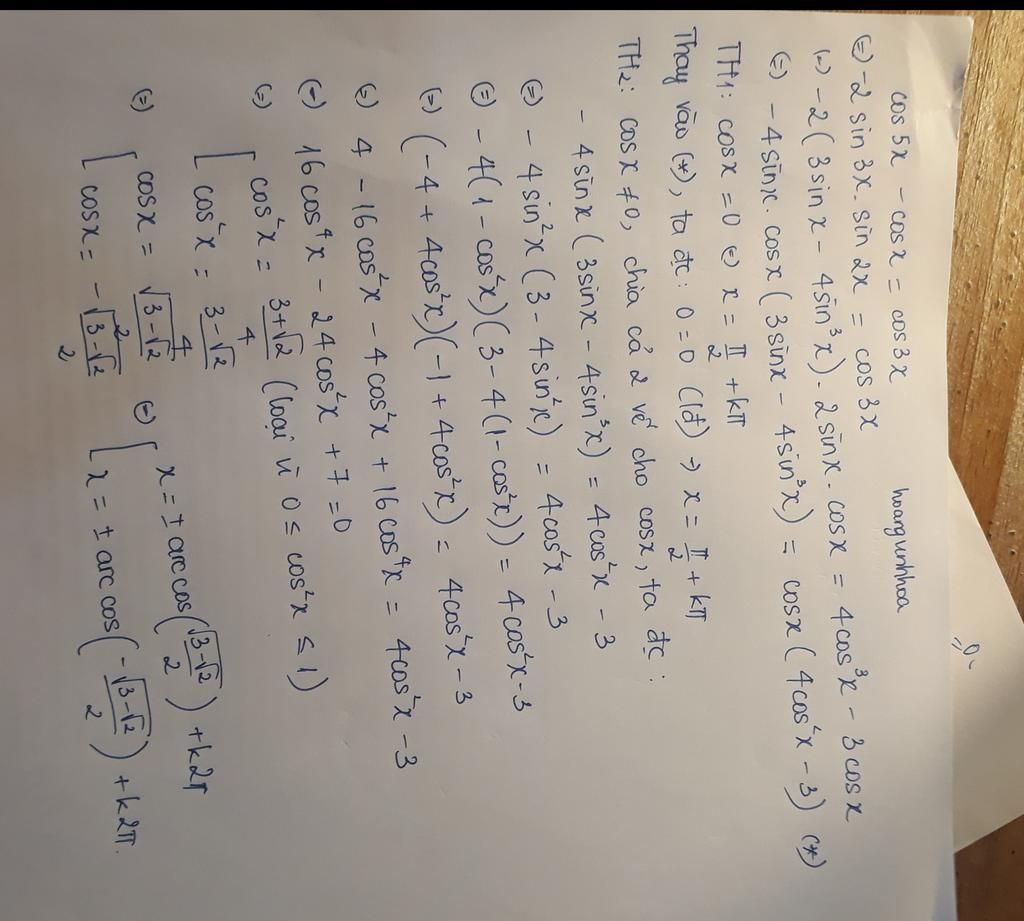 cos 5x - cosx = cos 3x
hoangunhhoa
(=) -2 sin 3x. sin 2x = cos 3x
(=) -2 ( 3 sin x - 4sin³x) . 2sinx. cosx = 4cos³x - 3cosx
(=) - 4sinx. cosx ( 3sinx - 4sin³x) = cosx ( 4cos²x - 3) (*)
TH1: cosx = 0 (=) x = π/2 + kπ
Thay vào (*), ta đc: 0 = 0 (lđ) → x = π/2 + kπ
TH2: cosx ≠ 0, chia cả 2 vế cho cosx, ta đc:
- 4sinx ( 3sinx - 4sin³x) = 4cos²x - 3
(=) - 4sin²x ( 3 - 4sin²x) = 4cos²x - 3
(=) - 4(1 - cos²x)( 3 - 4(1-cos²x)) = 4cos²x-3
(=) (-4 + 4cos²x)(-1 + 4cos²x) = 4cos²x - 3
(=) 4 - 16cos²x - 4cos²x + 16cos⁴x = 4cos²x - 3
(=) 16cos⁴x - 24cos²x + 7 = 0
(=) [ cos²x = (3+√2)/4 (loại vì 0 ≤ cos²x ≤ 1)
[ cos²x = (3-√2)/4
(=) [ cosx = √(3-√2)/2 (=) [ x = ± arccos(√(3-√2)/2) + k2π
[ cosx = -√(3-√2)/2 [ x = ± arc cos(-√(3-√2)/2) + k2π.
=0